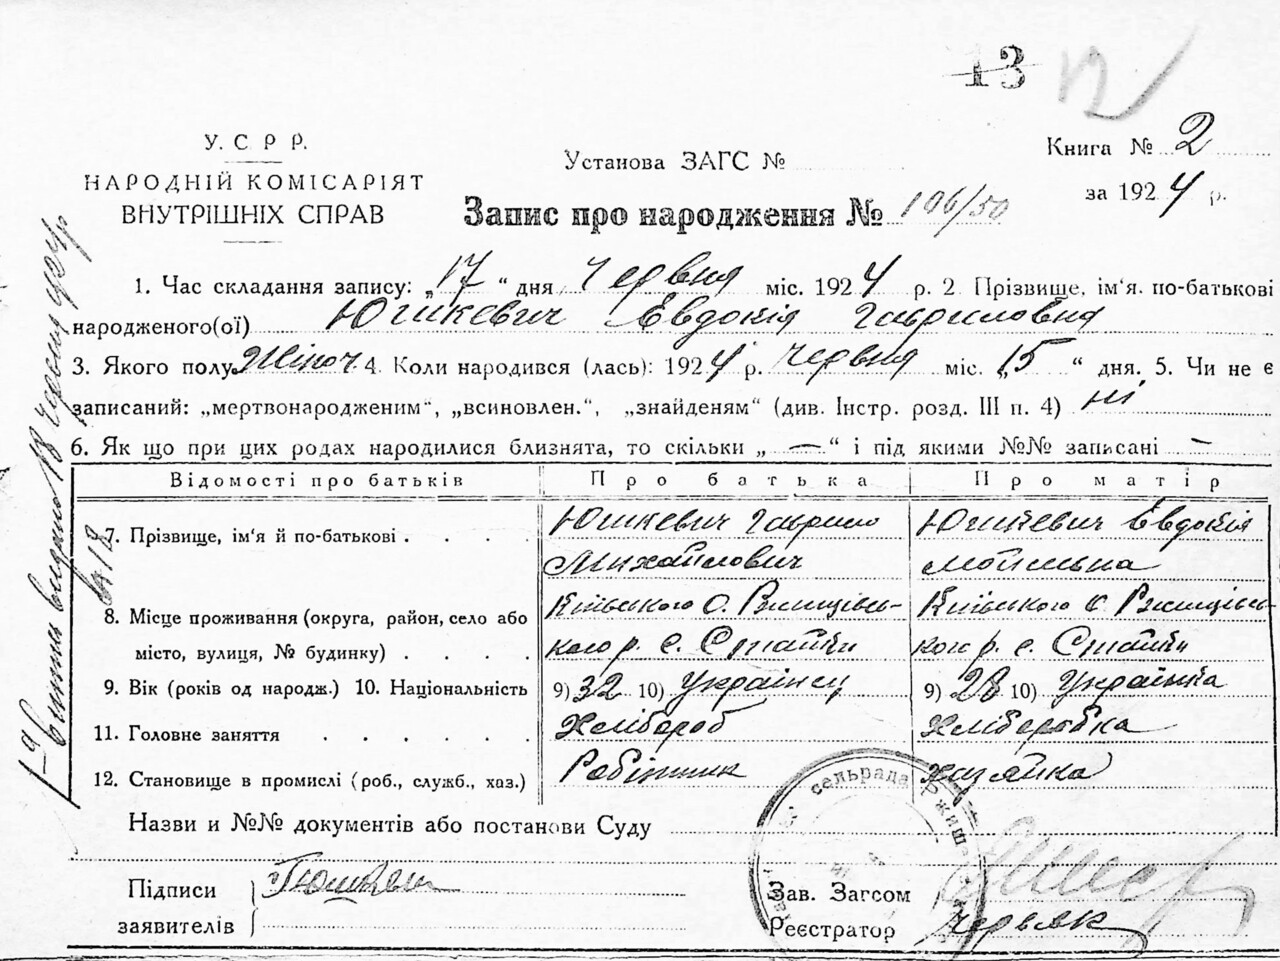 13 12
У. С Р Р.
НАРОДНІЙ КОМІСАРІЯТ
ВНУТРІШНІХ СПРАВ
Установа ЗАГС №
Книга № 2
за 1924 р.
Запис про народження № 106/50
1. Час складання запису: „17“ дня червня міс. 1924 р. 2 Прізвище, ім'я. по-батькові
народженого(ої) Юшкевич Евдокія Гавриловна
3. Якого полу Жіноч. 4. Коли народився (лась): 1924 р. червня міс. „15“ дня. 5. Чи не є
записаний: „мертвонародженим“, „всиновлен.“, „знайденям“ (див. Інстр. розд. III п. 4) ні
6. Як що при цих родах народилися близнята, то скільки „—“ і під якими №№ записані —
Відомості про батьків Про батька Про матір
7. Прізвище, ім'я й по-батькові . . . . Юшкевич Гаврило Юшкевич Евдокія
Михайлович
8. Місце проживання (округа, район, село або Київського О. Ржищівсь- Київського О. Ржищівсь-
місто, вулиця, № будинку) . . . . кого р. с. Стайки кого р. с. Стайки
9. Вік (років од народж.) 10. Національність 9) 32 10) Українец 9) 28 10) Українка
11. Головне заняття . . . . . Хлібороб Хлiборобка
12. Становище в промислі (роб., служб., хаз.) Робітник Хазяйка
Назви и №№ документів або постанови Суду
Підписи
заявителів
Зав. Загсом
Реєстратор Червяк
сельрада Ржищ